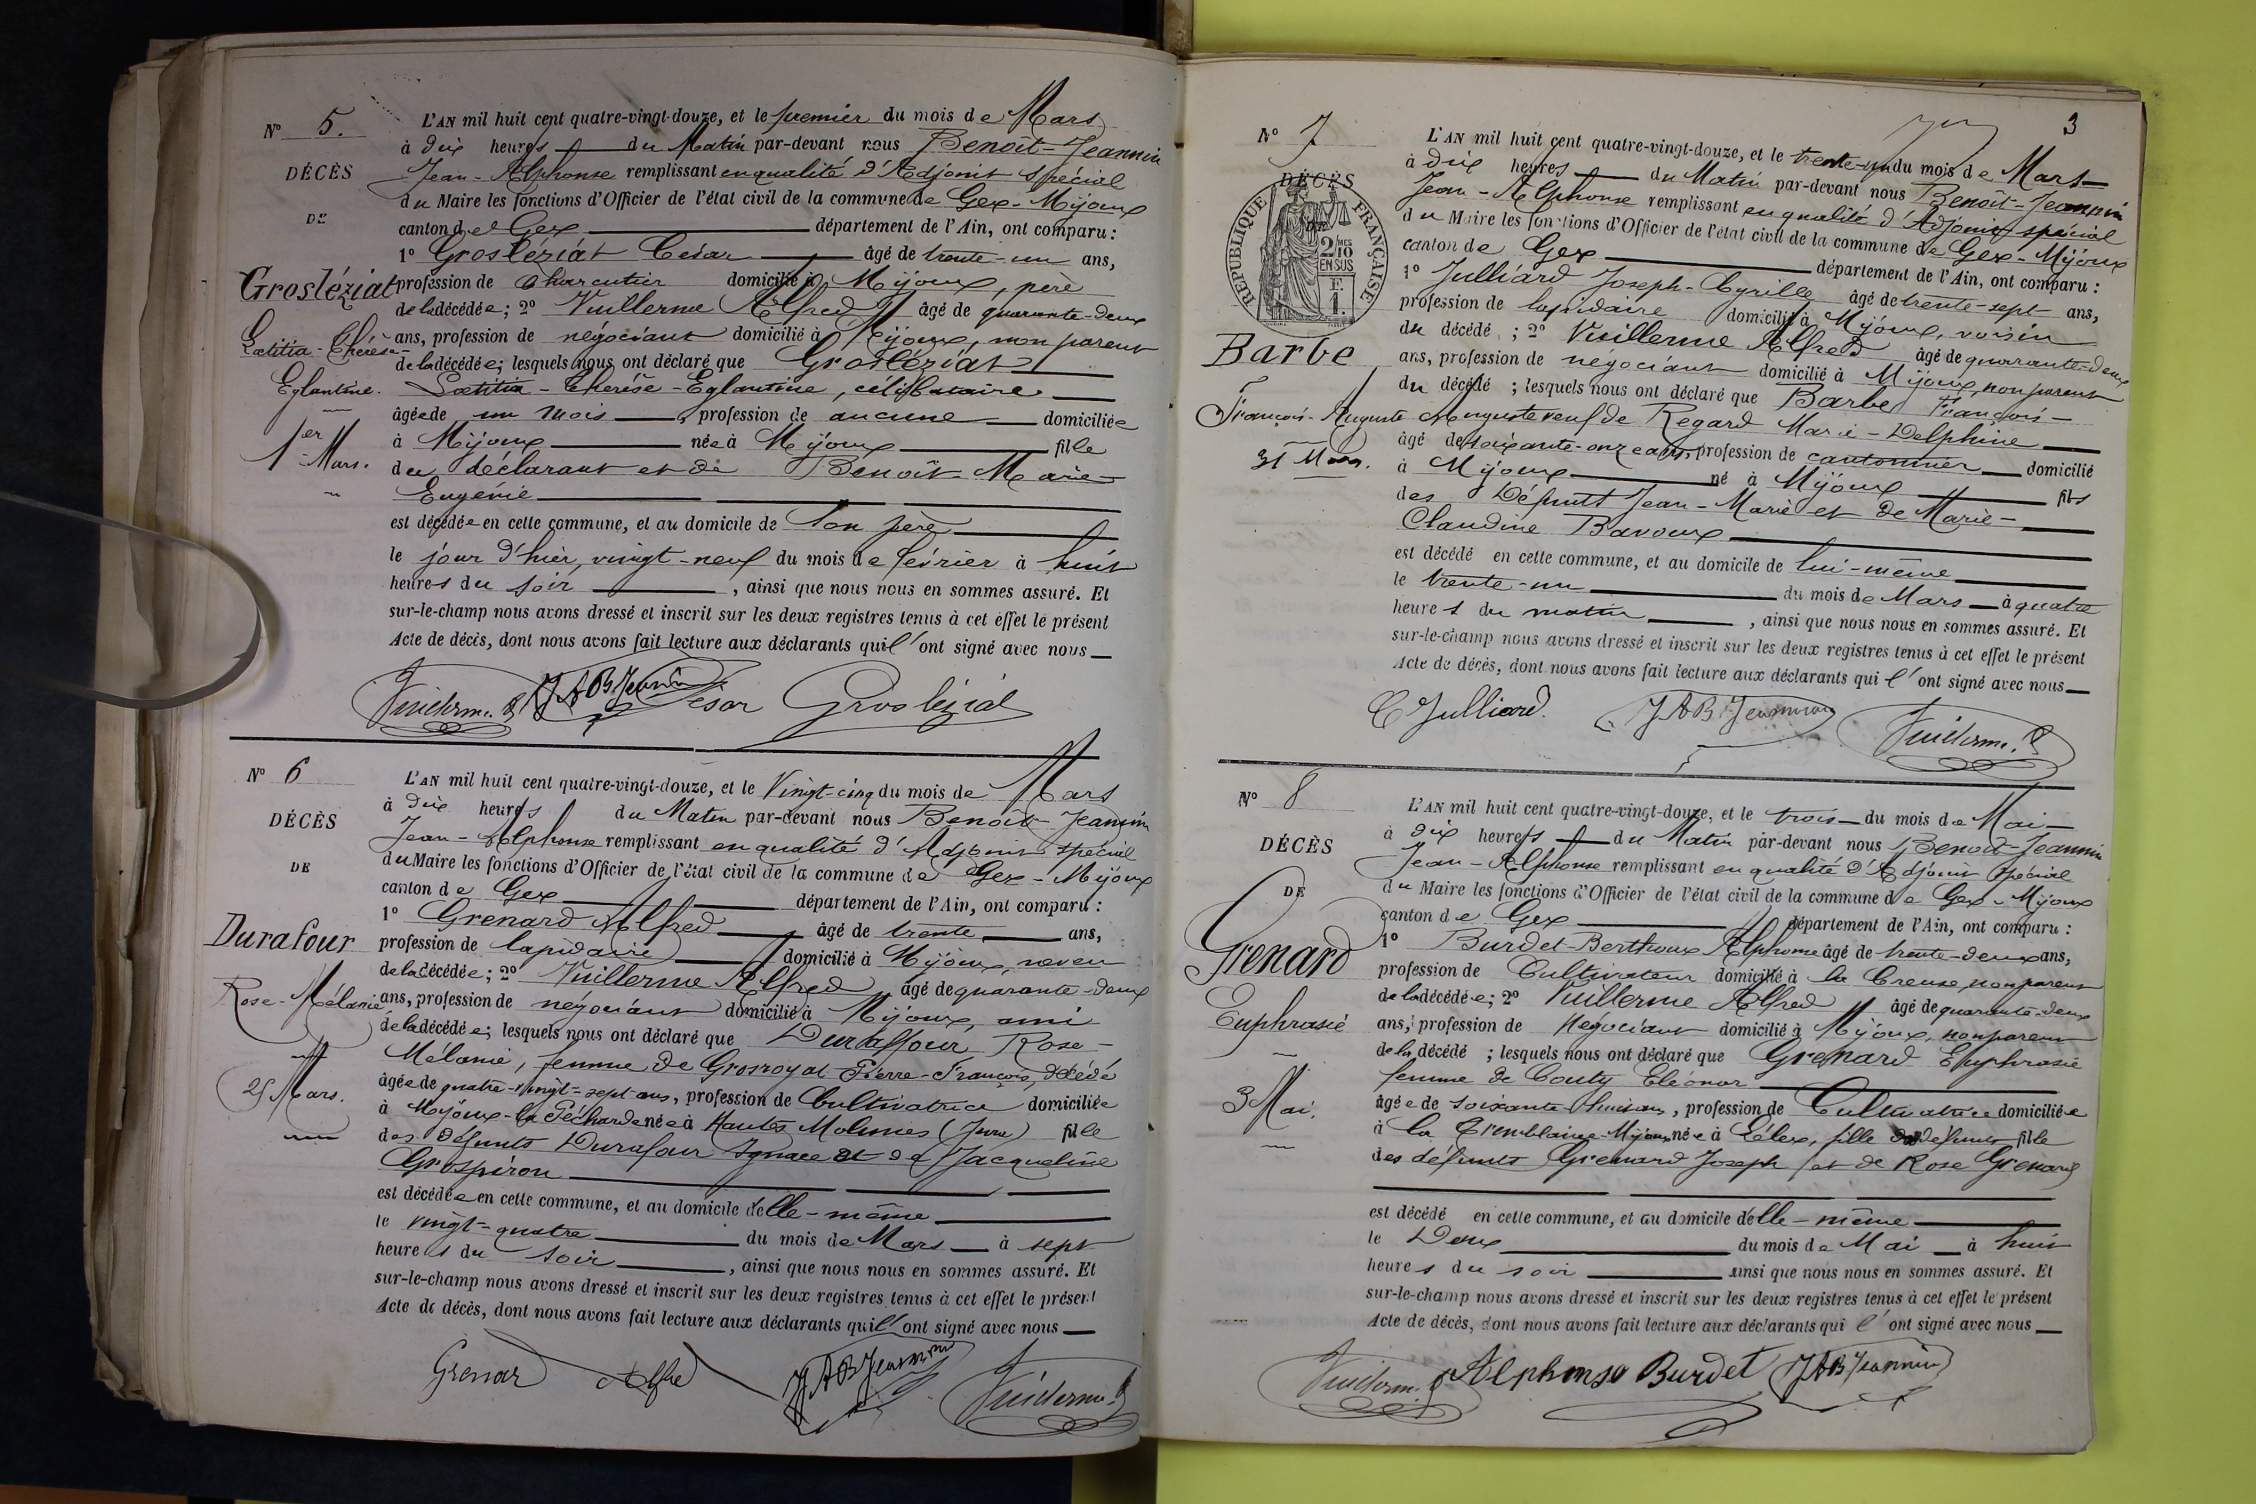 N° 5.
DÉCÈS
DE
Grosléziat
Lætitia-Thérèse-
Eglantine.
1er Mars.
L'AN mil huit cent quatre-vingt-douze, et le premier du mois de Mars
à dix heures du Matin par-devant nous Benoît-Jeannin
Jean-Alphonse remplissant en qualité d'Adjoint spécial
du Maire les fonctions d'Officier de l'état civil de la commune de Gex-Mijoux
canton de Gex département de l'Ain, ont comparu :
1° Grosléziat César âgé de trente-un ans,
profession de charcutier domicilié à Mijoux, père
de la décédée; 2° Vuillerme Alfred âgé de quarante-deux
ans, profession de négociant domicilié à Mijoux, non parent
de la décédée; lesquels nous ont déclaré que Grosléziat
Lætitia-Thérèse-Eglantine, célibataire
âgée de un mois, profession de aucune domiciliée
à Mijoux née à Mijoux fille
du déclarant et de Benoît Marie-
Eugénie
est décédée en cette commune, et au domicile de son père
le jour d'hier, vingt-neuf du mois de février à huit
heures du soir, ainsi que nous nous en sommes assuré. Et
sur-le-champ nous avons dressé et inscrit sur les deux registres tenus à cet effet le présent
Acte de décès, dont nous avons fait lecture aux déclarants qui l'ont signé avec nous
Vuillerme. A JABJeannin César Grosléziat
N° 6
DÉCÈS
DE
Durafour
Rose-Mélanie
25 Mars.
L'AN mil huit cent quatre-vingt-douze, et le Vingt-cinq du mois de Mars
à dix heures du Matin par-devant nous Benoît-Jeannin
Jean-Alphonse remplissant en qualité d'Adjoint spécial
du Maire les fonctions d'Officier de l'état civil de la commune de Gex-Mijoux
canton de Gex département de l'Ain, ont comparu :
1° Grenard Alfred âgé de trente ans,
profession de lapidaire domicilié à Mijoux, neveu
de la décédée; 2° Vuillerme Alfred âgé de quarante-deux
ans, profession de négociant domicilié à Mijoux, ami
de la décédée; lesquels nous ont déclaré que Duraffour Rose-
Mélanie, femme de Grosroyat Pierre-François, décédé
âgée de quatre-vingt-sept ans, profession de Cultivatrice domiciliée
à Mijoux-la Péchard née à Hautes Molunes (Jura) fille
des défunts Durafour Ignace et de Jacqueline
Grospiron
est décédée en cette commune, et au domicile d'elle-même
le vingt-quatre du mois de Mars à sept
heures du soir, ainsi que nous nous en sommes assuré. Et
sur-le-champ nous avons dressé et inscrit sur les deux registres tenus à cet effet le présent
Acte de décès, dont nous avons fait lecture aux déclarants qui l'ont signé avec nous
Grenard Alfred JABJeannin Vuillerme. A
3
N° 7
DÉCÈS
DE
RÉPUBLIQUE FRANÇAISE
2/10 MES
EN SUS
F.
1.
Barbe
François-Auguste
31 Mars.
L'AN mil huit cent quatre-vingt-douze, et le trente-un du mois de Mars
à dix heures du Matin par-devant nous Benoît-Jeannin
Jean-Alphonse remplissant en qualité d'Adjoint spécial
du Maire les fonctions d'Officier de l'état civil de la commune de Gex-Mijoux
canton de Gex département de l'Ain, ont comparu :
1° Julliard Joseph-Cyrille âgé de trente-sept ans,
profession de lapidaire domicilié à Mijoux, voisin
du décédé ; 2° Vuillerme Alfred âgé de quarante-deux
ans, profession de négociant domicilié à Mijoux, non parent
du décédé ; lesquels nous ont déclaré que Barbe François-
Auguste veuf de Regard Marie-Delphine
âgé de soixante-onze ans, profession de cantonnier domicilié
à Mijoux né à Mijoux fils
des Défunts Jean-Marie et de Marie-
Claudine Bavoux
est décédé en cette commune, et au domicile de lui-même
le trente-un du mois de Mars à quatre
heures du matin, ainsi que nous nous en sommes assuré. Et
sur-le-champ nous avons dressé et inscrit sur les deux registres tenus à cet effet le présent
Acte de décès, dont nous avons fait lecture aux déclarants qui l'ont signé avec nous
C Julliard. JABJeannin Vuillerme. A
N° 8
DÉCÈS
DE
Grenard
Euphrasie
3 Mai.
L'AN mil huit cent quatre-vingt-douze, et le trois du mois de Mai
à dix heures du Matin par-devant nous Benoît-Jeannin
Jean-Alphonse remplissant en qualité d'Adjoint spécial
du Maire les fonctions d'Officier de l'état civil de la commune de Gex-Mijoux
canton de Gex département de l'Ain, ont comparu :
1° Burdet-Berthoux Alphonse âgé de trente-deux ans,
profession de Cultivateur domicilié à la Creuse, non parent
de la décédée; 2° Vuillerme Alfred âgé de quarante-deux
ans, profession de Négociant domicilié à Mijoux, non parent
de la décédé ; lesquels nous ont déclaré que Grenard Euphrasie
femme de Couty Eléonor
âgée de soixante-huit ans, profession de Cultivatrice domiciliée
à la Tremblaine-Mijoux née à Lélex, fille de défunts fille
des défunts Grenard Joseph et de Rose Grenard
est décédé en cette commune, et au domicile d'elle-même
le Deux du mois de Mai à huit
heures du soir ainsi que nous nous en sommes assuré. Et
sur-le-champ nous avons dressé et inscrit sur les deux registres tenus à cet effet le présent
Acte de décès, dont nous avons fait lecture aux déclarants qui l'ont signé avec nous
Vuillerm. A Alphonse Burdet JABJeannin